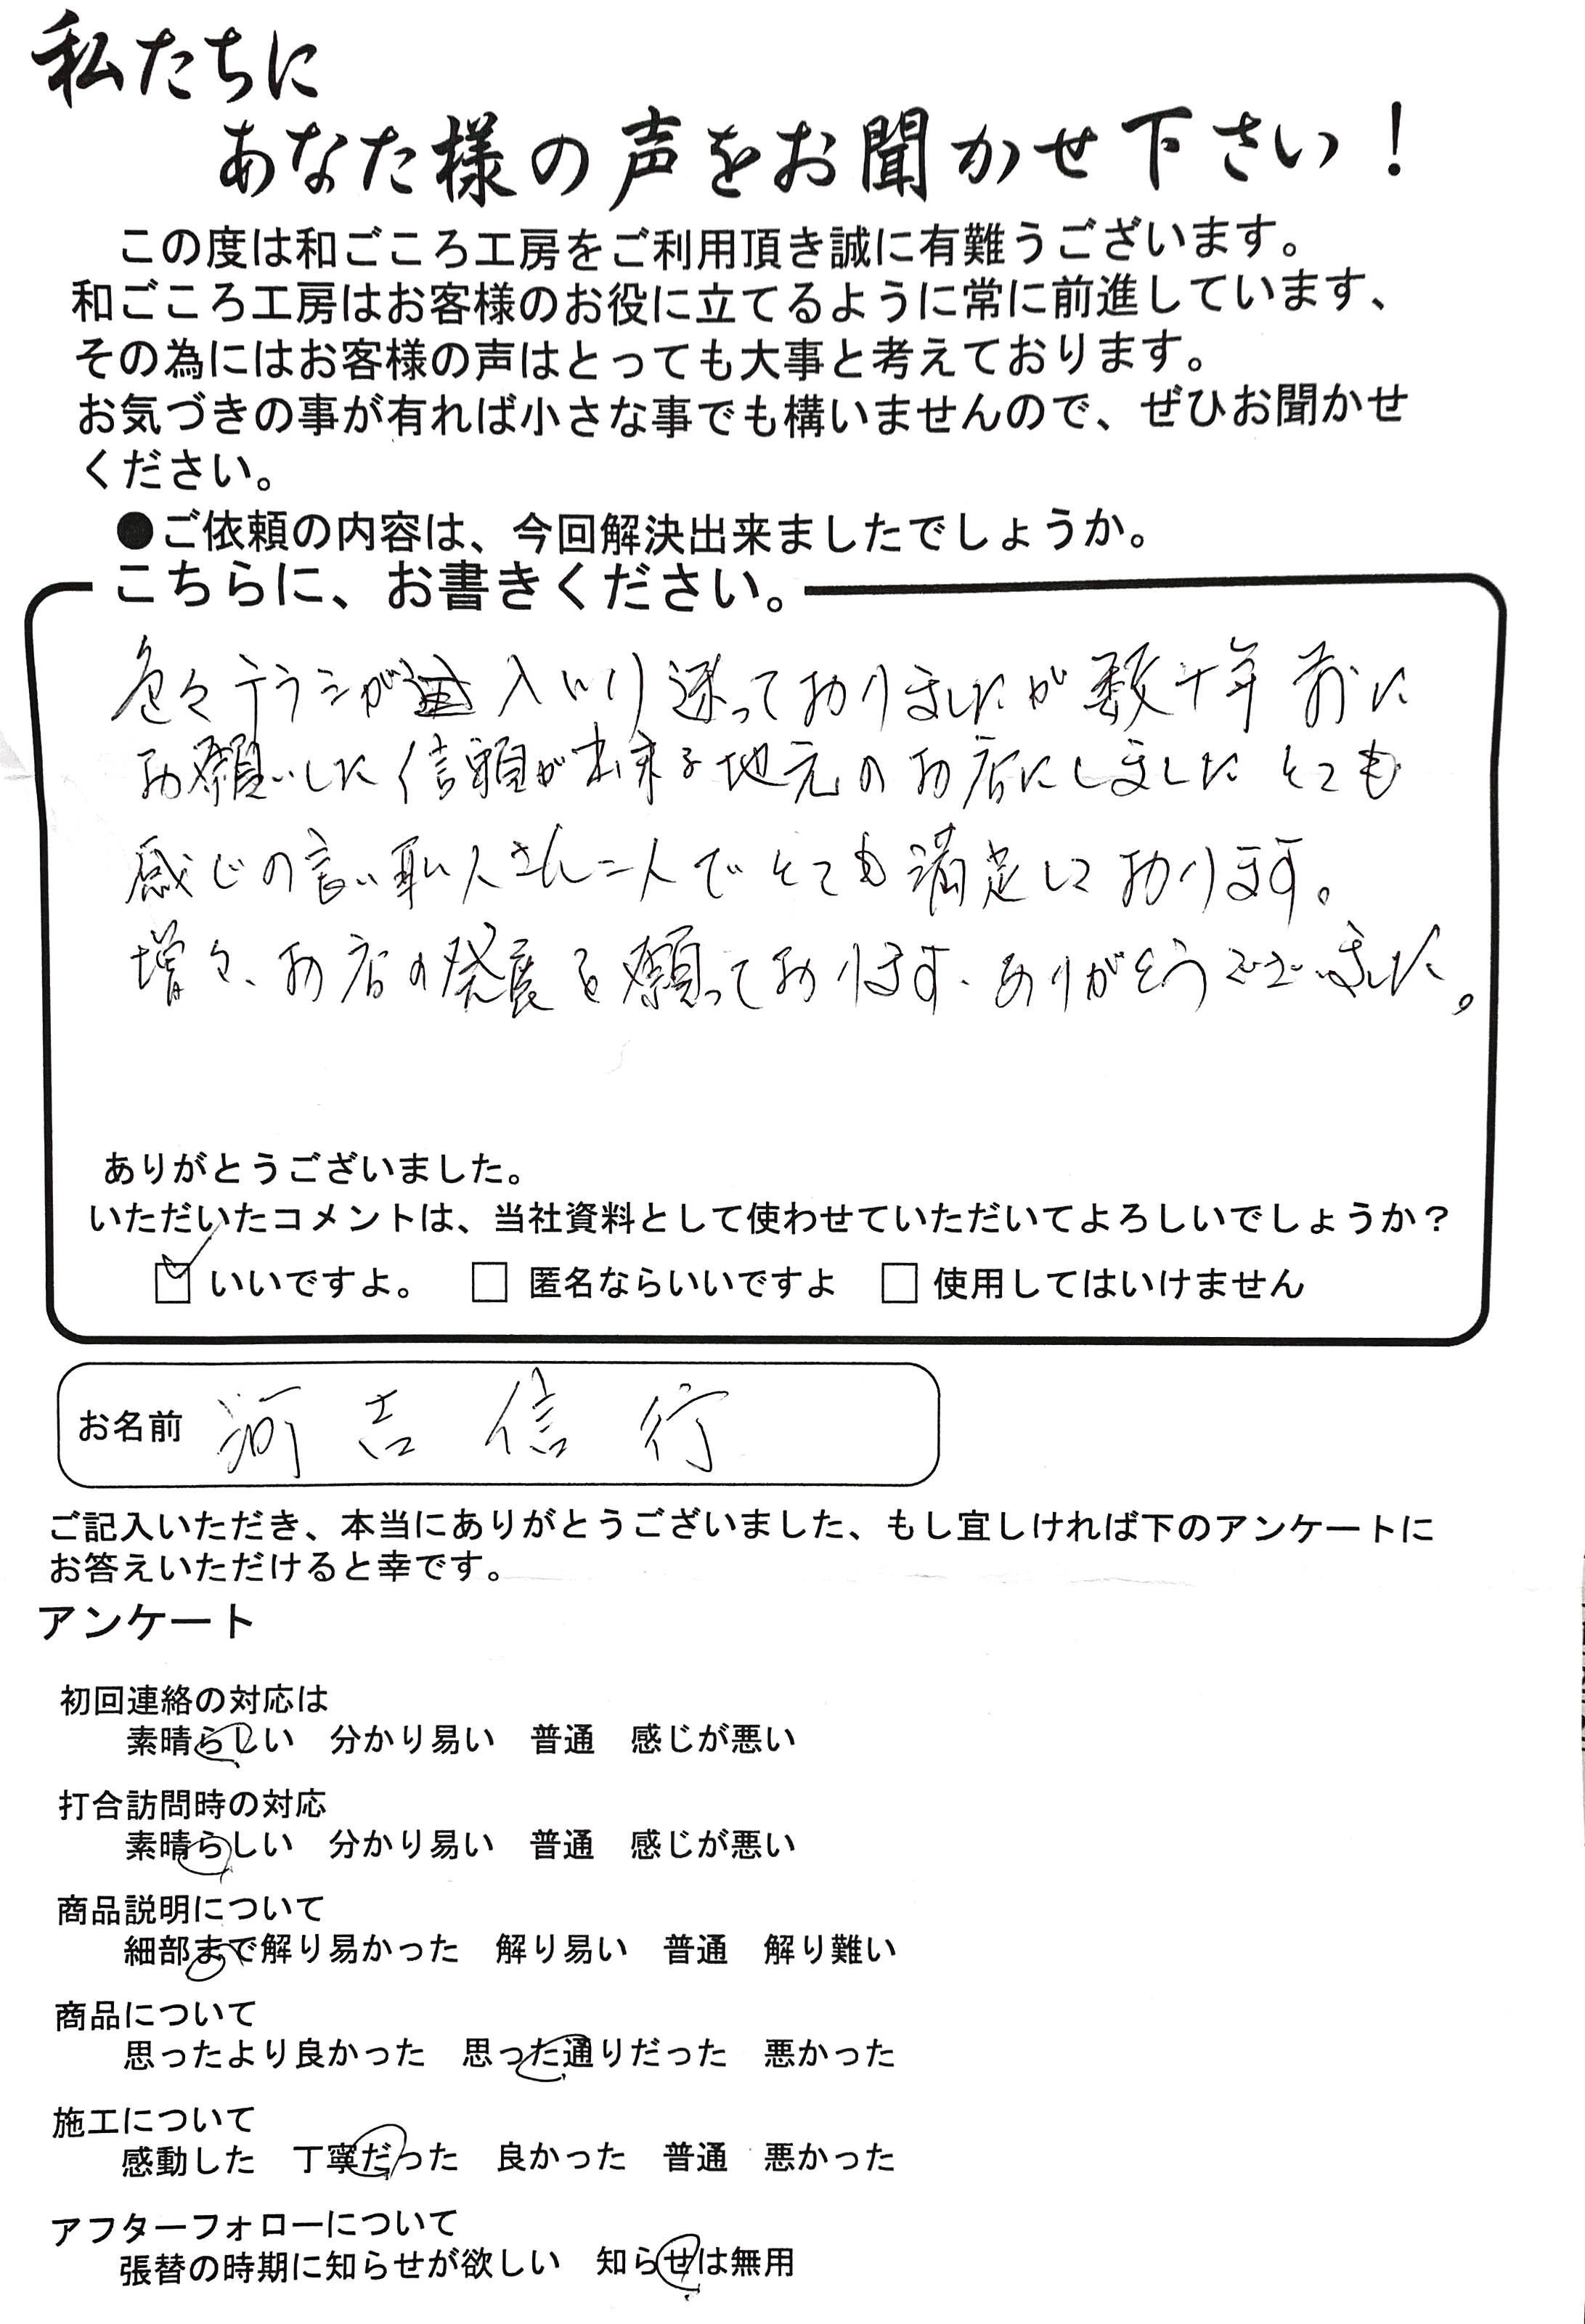 私たちに
あなた様の声をお聞かせ下さい!
この度は和ごころ工房をご利用頂き誠に有難うございます。
和ごころ工房はお客様のお役に立てるように常に前進しています、
その為にはお客様の声はとっても大事と考えております。
お気づきの事が有れば小さな事でも構いませんので、ぜひお聞かせ
ください。
●ご依頼の内容は、今回解決出来ましたでしょうか。
こちらに、お書きください。
色々チラシが 入り 迷っておりましたが 数十年前に
お願いした信頼が出来る地元のお店にしました とても
感じの良い職人さん二人でとても満足しております。
増々、お店の発展を願っております、ありがとうございました。
ありがとうございました。
いただいたコメントは、当社資料として使わせていただいてよろしいでしょうか?
いいですよ。 □ 匿名ならいいですよ □ 使用してはいけません
お名前 河吉信行
ご記入いただき、本当にありがとうございました、もし宜しければ下のアンケートに
お答えいただけると幸です。
アンケート
初回連絡の対応は
素晴らしい 分かり易い 普通 感じが悪い
打合訪問時の対応
素晴らしい 分かり易い 普通 感じが悪い
商品説明について
細部まで解り易かった 解り易い 普通 解り難い
商品について
思ったより良かった 思った通りだった 悪かった
施工について
感動した 丁寧だった 良かった 普通 悪かった
アフターフォローについて
張替の時期に知らせが欲しい 知らせは無用